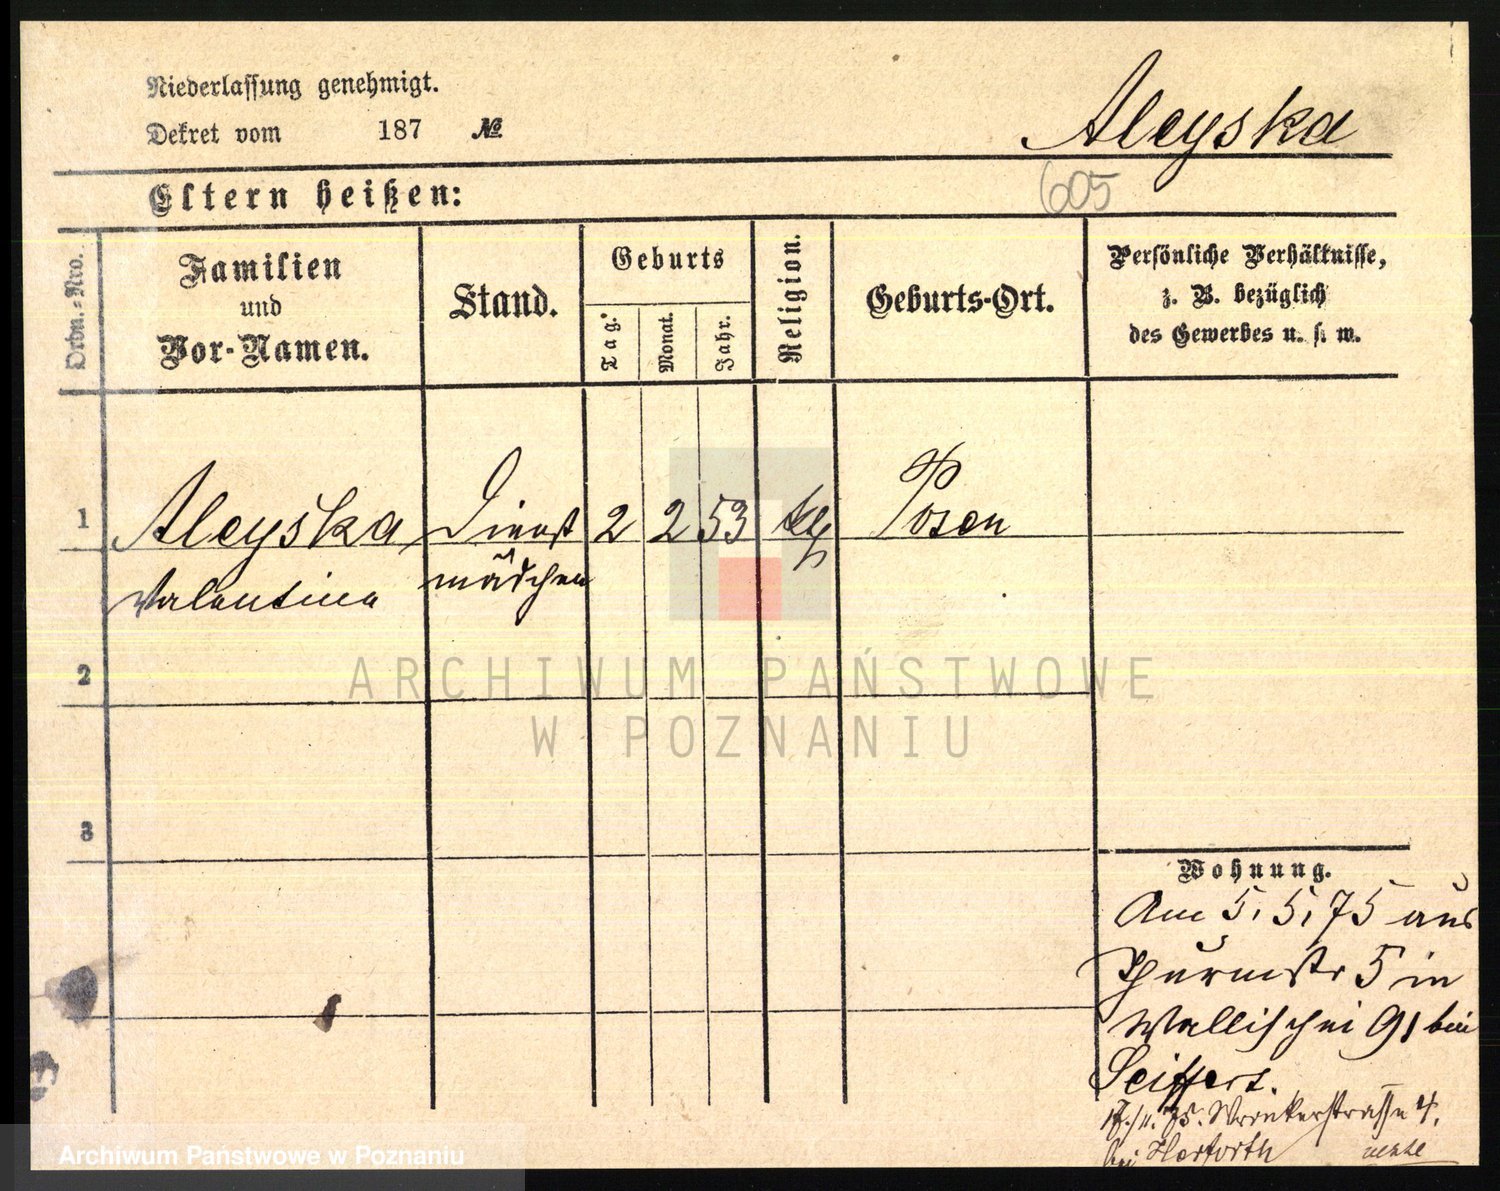 Niederlassung genehmigt.
Dekret vom 187 №
Aleyska
605
Eltern heißen:
Ordn.-Nro.
Familien
und
Vor-Namen.
Stand.
Geburts
Tag.
Monat.
Jahr.
Religion.
Geburts-Ort.
Persönliche Verhältnisse,
z. B. bezüglich
des Gewerbes u. s. w.
1 Aleyska Dienst 2 2 53 Posen
Valentina mädchen
2
3
ARCHIWUM PAŃSTWOWE
W POZNANIU
Wohnung.
Am 5, 5, 75 aus
Thurmstr 5 in
Wallischei 91 bei
Seiffert.
17./11. 75. 4.
bei Herforth
Archiwum Państwowe w Poznaniu